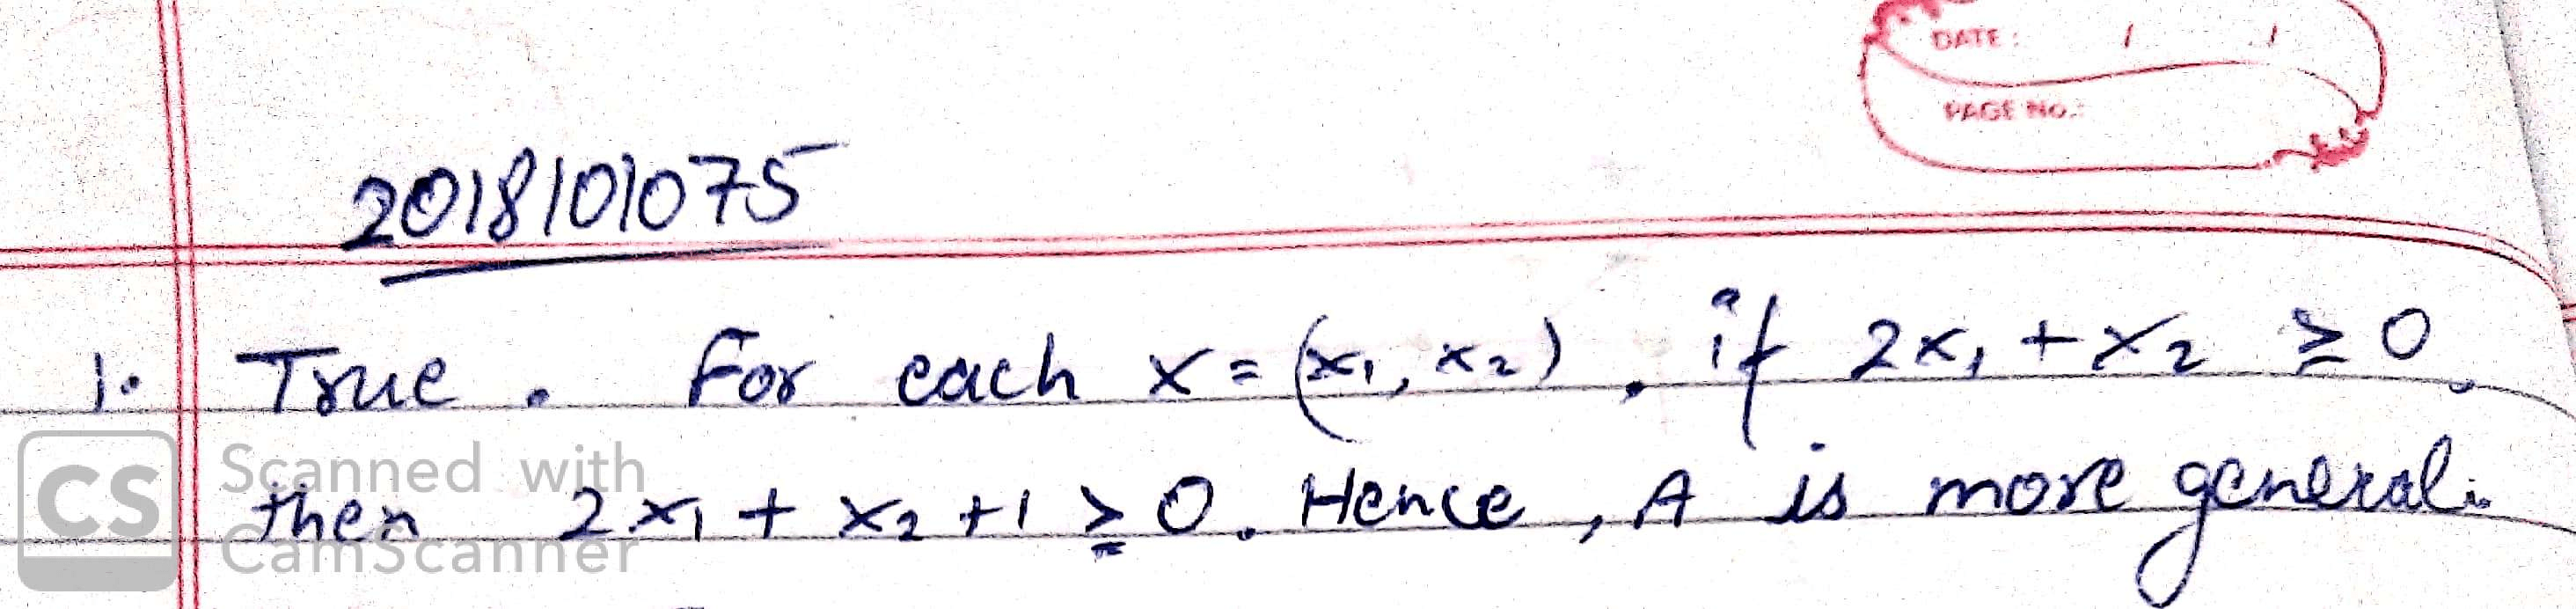 DATE: / /
PAGE NO.:
2018101075
1. True. For each x = (x₁, x₂), if 2x₁ + x₂ ≥ 0,
then 2x₁ + x₂ + 1 ≥ 0. Hence, A is more general.
CS Scanned with
CamScanner